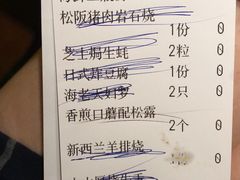 松阪猪肉岩石烧
1份 0
芝士焗生蚝 2粒 0
日式炸豆腐 1份 0
海老天妇罗 2只 0
香煎口蘑配松露
2个 0
新西兰羊排烧
0